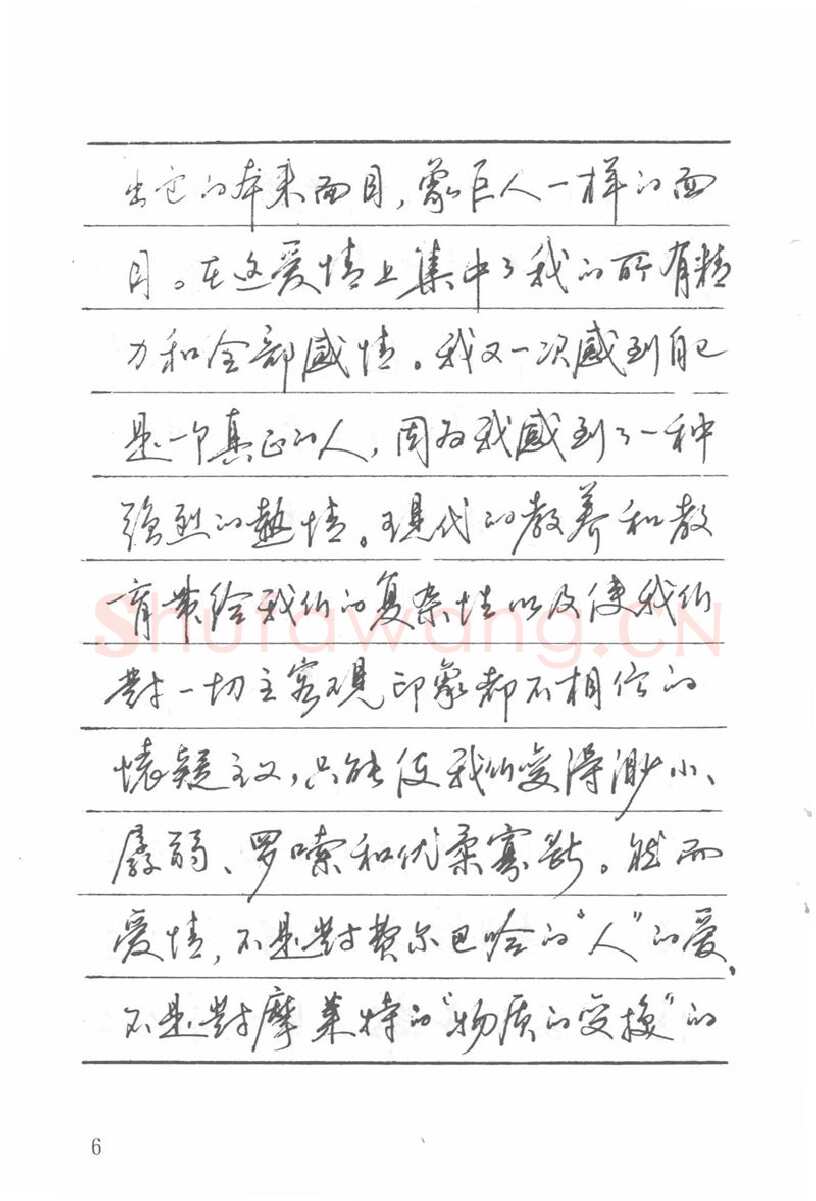 出它的本来面目，象巨人一样的面
目。在这爱情上集中了我的所有精
力和全部感情。我又一次感到自己
是一个真正的人，因为我感到了一种
强烈的热情。现代的教养和教
育带给我们的复杂性以及使我们
對一切主客观印象都不相信的
怀疑主义，只能使我们变得渺小、
孱弱、罗嗦和优柔寡断。然而
爱情，不是對费尔巴哈的“人”的爱，
不是對摩莱特的“物质的变换”的
Shufawang.CN
6